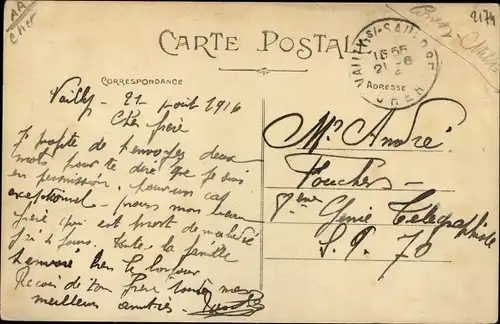 AA
Cher
2174
CARTE POSTALE
VAILLY-S/-SAULDRE
18 55
21-8
CHER
CORRESPONDANCE
ADRESSE
Vailly 21 Aout 1916
Cher frère
Je profite de t'envoyer deux
mots pour te dire que je suis
en permission, pour un cas
exceptionnel mon beau
frère qui est mort de maladie
j'ai 4 jours. toute la famille
t'envoie bien le bonjour
Recois de ton frère toutes mes
meilleurs amitiés
Mr André
Foucher
7eme Génie Télégraphiste
S. P. 70